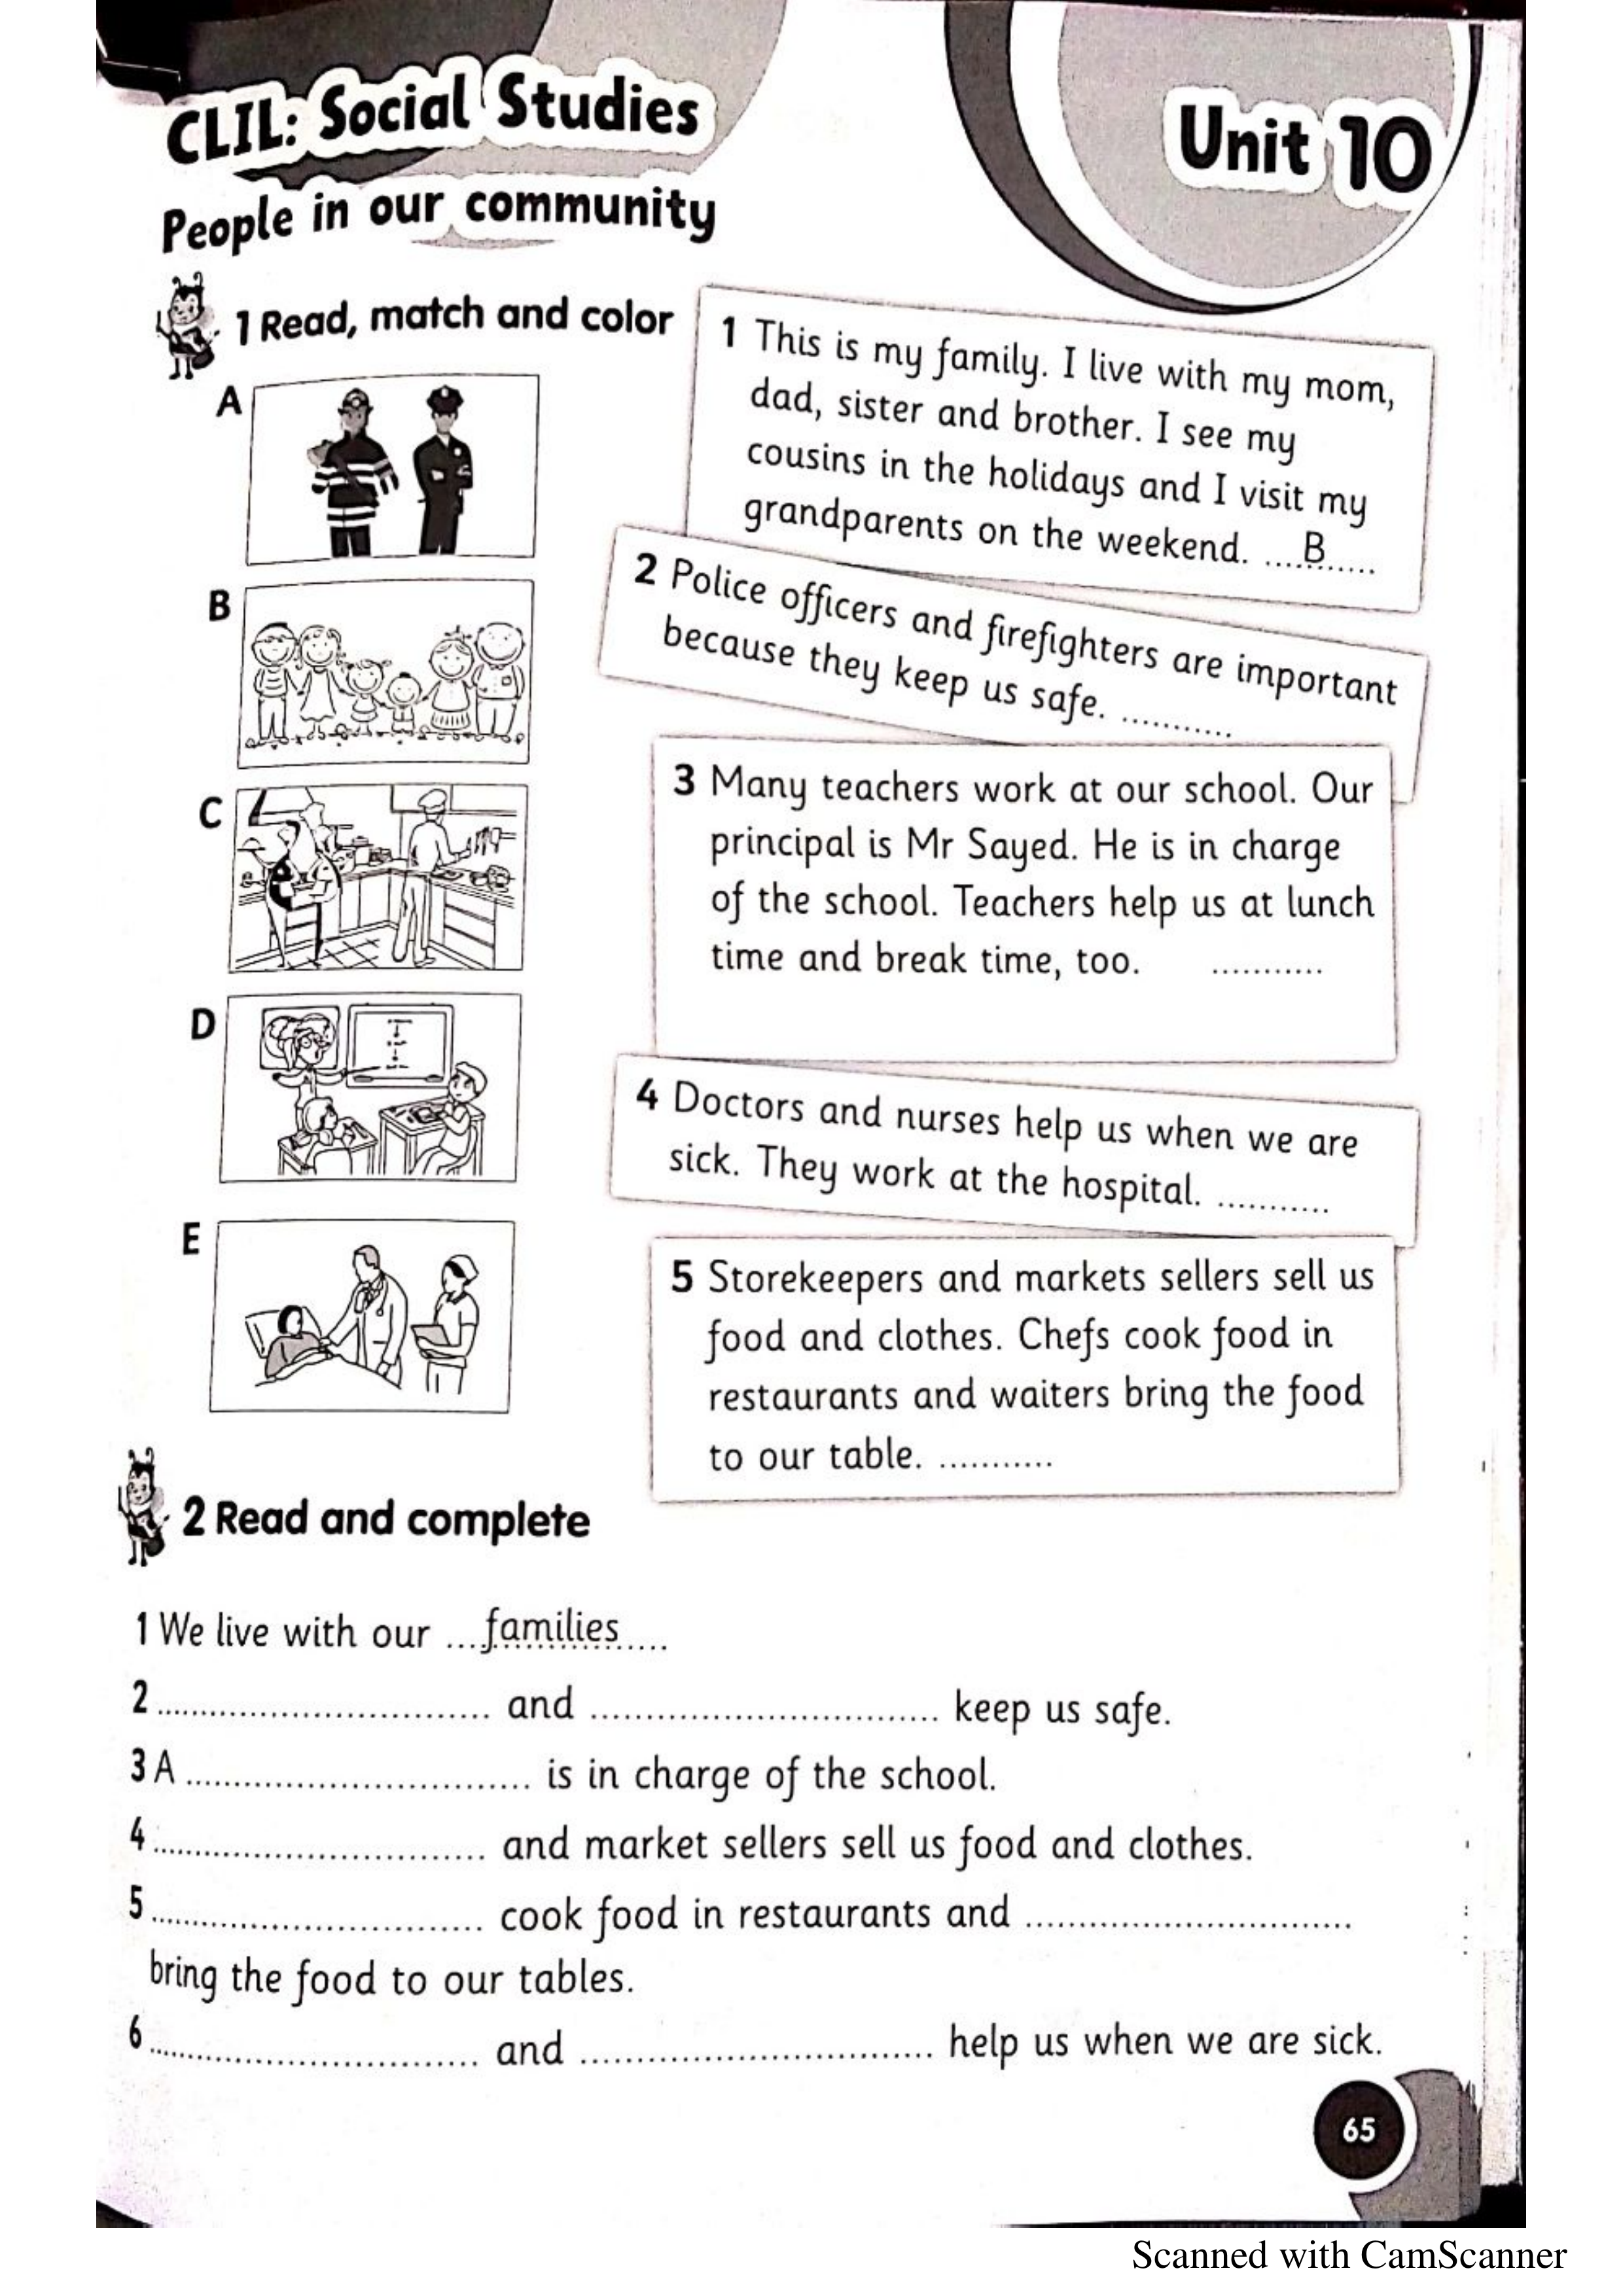 CLIL: Social Studies
Unit 10
People in our community
1 Read, match and color
A
B
C
D
E
1 This is my family. I live with my mom,
dad, sister and brother. I see my
cousins in the holidays and I visit my
grandparents on the weekend. ....B......
2 Police officers and firefighters are important
because they keep us safe. ...........
3 Many teachers work at our school. Our
principal is Mr Sayed. He is in charge
of the school. Teachers help us at lunch
time and break time, too. ...........
4 Doctors and nurses help us when we are
sick. They work at the hospital. ...........
5 Storekeepers and markets sellers sell us
food and clothes. Chefs cook food in
restaurants and waiters bring the food
to our table. ...........
2 Read and complete
1 We live with our ...families....
2 ................................. and ................................. keep us safe.
3 A ................................. is in charge of the school.
4 ................................. and market sellers sell us food and clothes.
5 ................................. cook food in restaurants and .................................
bring the food to our tables.
6 ................................. and ................................. help us when we are sick.
65
Scanned with CamScanner